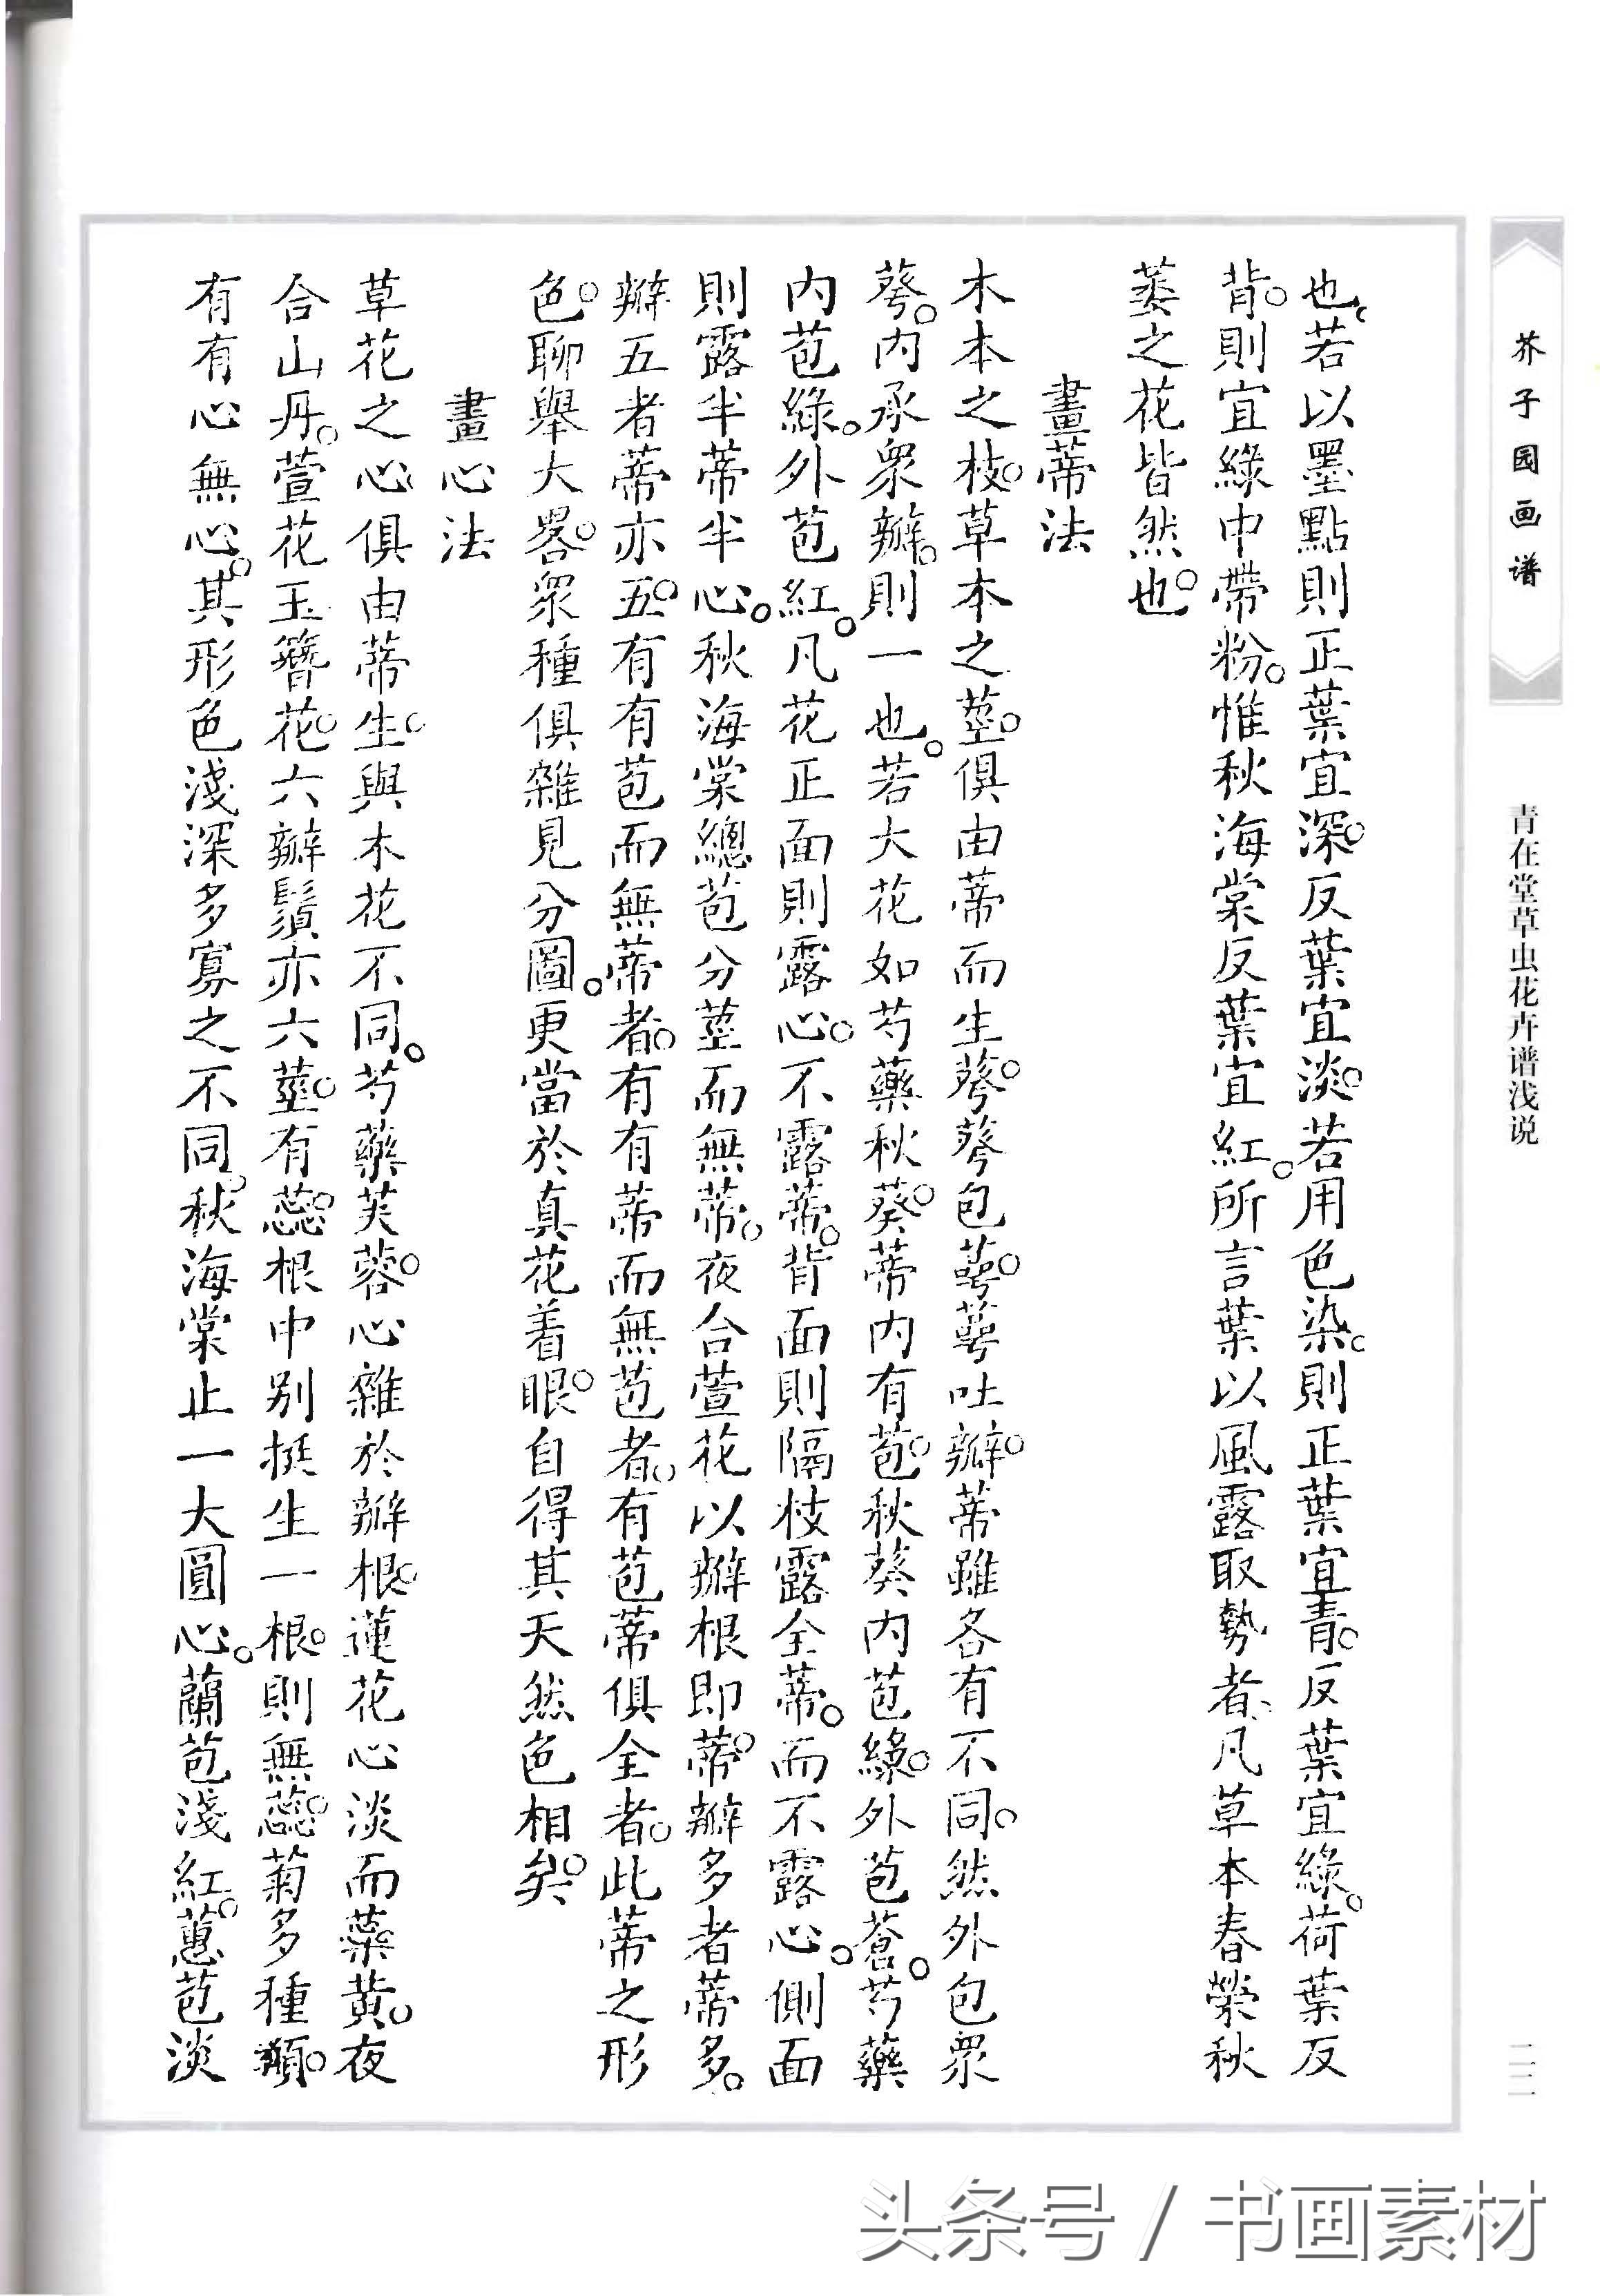 芥子园画谱
青在堂草虫花卉谱浅说
二二
也若以墨點則正葉宜深反葉宜淡若用色染則正葉宜青反葉宜綠荷葉反
背則宜綠中帶粉惟秋海棠反葉宜紅所言葉以風露取勢者凡草本春榮秋
萎之花皆然也
畫蒂法
木本之枝草本之莖俱由蒂而生萼萼包蕚蕚吐瓣蒂雖各有不同然外包衆
萼內承衆瓣則一也若大花如芍藥秋葵蒂內有苞秋葵內苞綠外苞蒼芍藥
內苞綠外苞紅凡花正面則露心不露蒂背面則隔枝露全蒂而不露心側面
則露半蒂半心秋海棠總苞分莖而無蒂夜合萱花以瓣根即蒂瓣多者蒂多
瓣五者蒂亦五有有苞而無蒂者有有蒂而無苞者有苞蒂俱全者此蒂之形
色聊舉大畧衆種俱雜見分圖更當於真花着眼自得其天然色相矣
畫心法
草花之心俱由蒂生與木花不同芍藥芙蓉心雜於瓣根蓮花心淡而蘂黃夜
合山丹萱花玉簪花六瓣鬚亦六莖有蕊根中别挺生一根則無蕊菊多種類
有有心無心其形色淺深多寡之不同秋海棠止一大圓心蘭苞淺紅蕙苞淡
头条号 / 书画素材